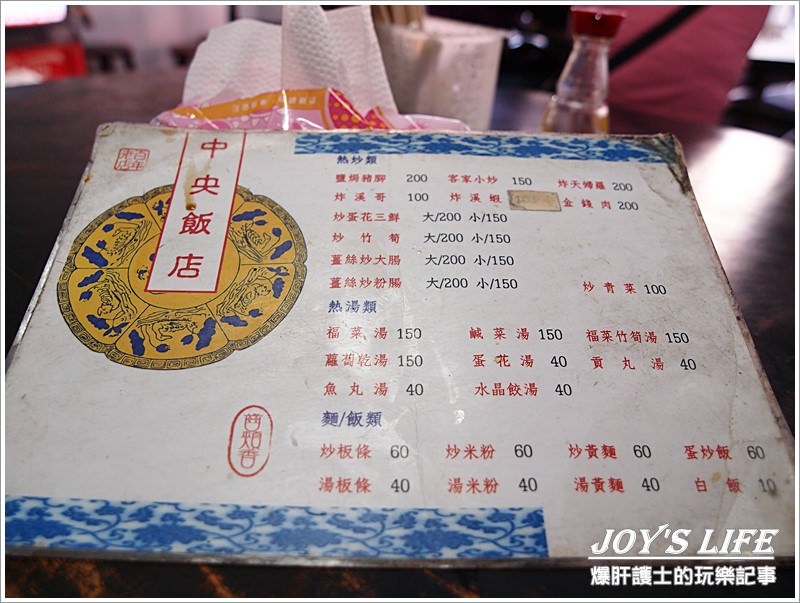 中央飯店
百年老店
熱炒類
鹽焗豬腳 200 客家小炒 150 炸天婦羅 200
炸溪哥 100 炸溪蝦 金錢肉 200
炒蛋花三鮮 大/200 小/150
炒竹筍 大/200 小/150
薑絲炒大腸 大/200 小/150
薑絲炒粉腸 大/200 小/150 炒青菜 100
熱湯類
福菜湯 150 鹹菜湯 150 福菜竹筍湯 150
蘿蔔乾湯 150 蛋花湯 40 貢丸湯 40
魚丸湯 40 水晶餃湯 40
麵/飯類
炒板條 60 炒米粉 60 炒黃麵 60 蛋炒飯 60
湯板條 40 湯米粉 40 湯黃麵 40 白飯 10
JOY'S LIFE
爆肝護士的玩樂記事